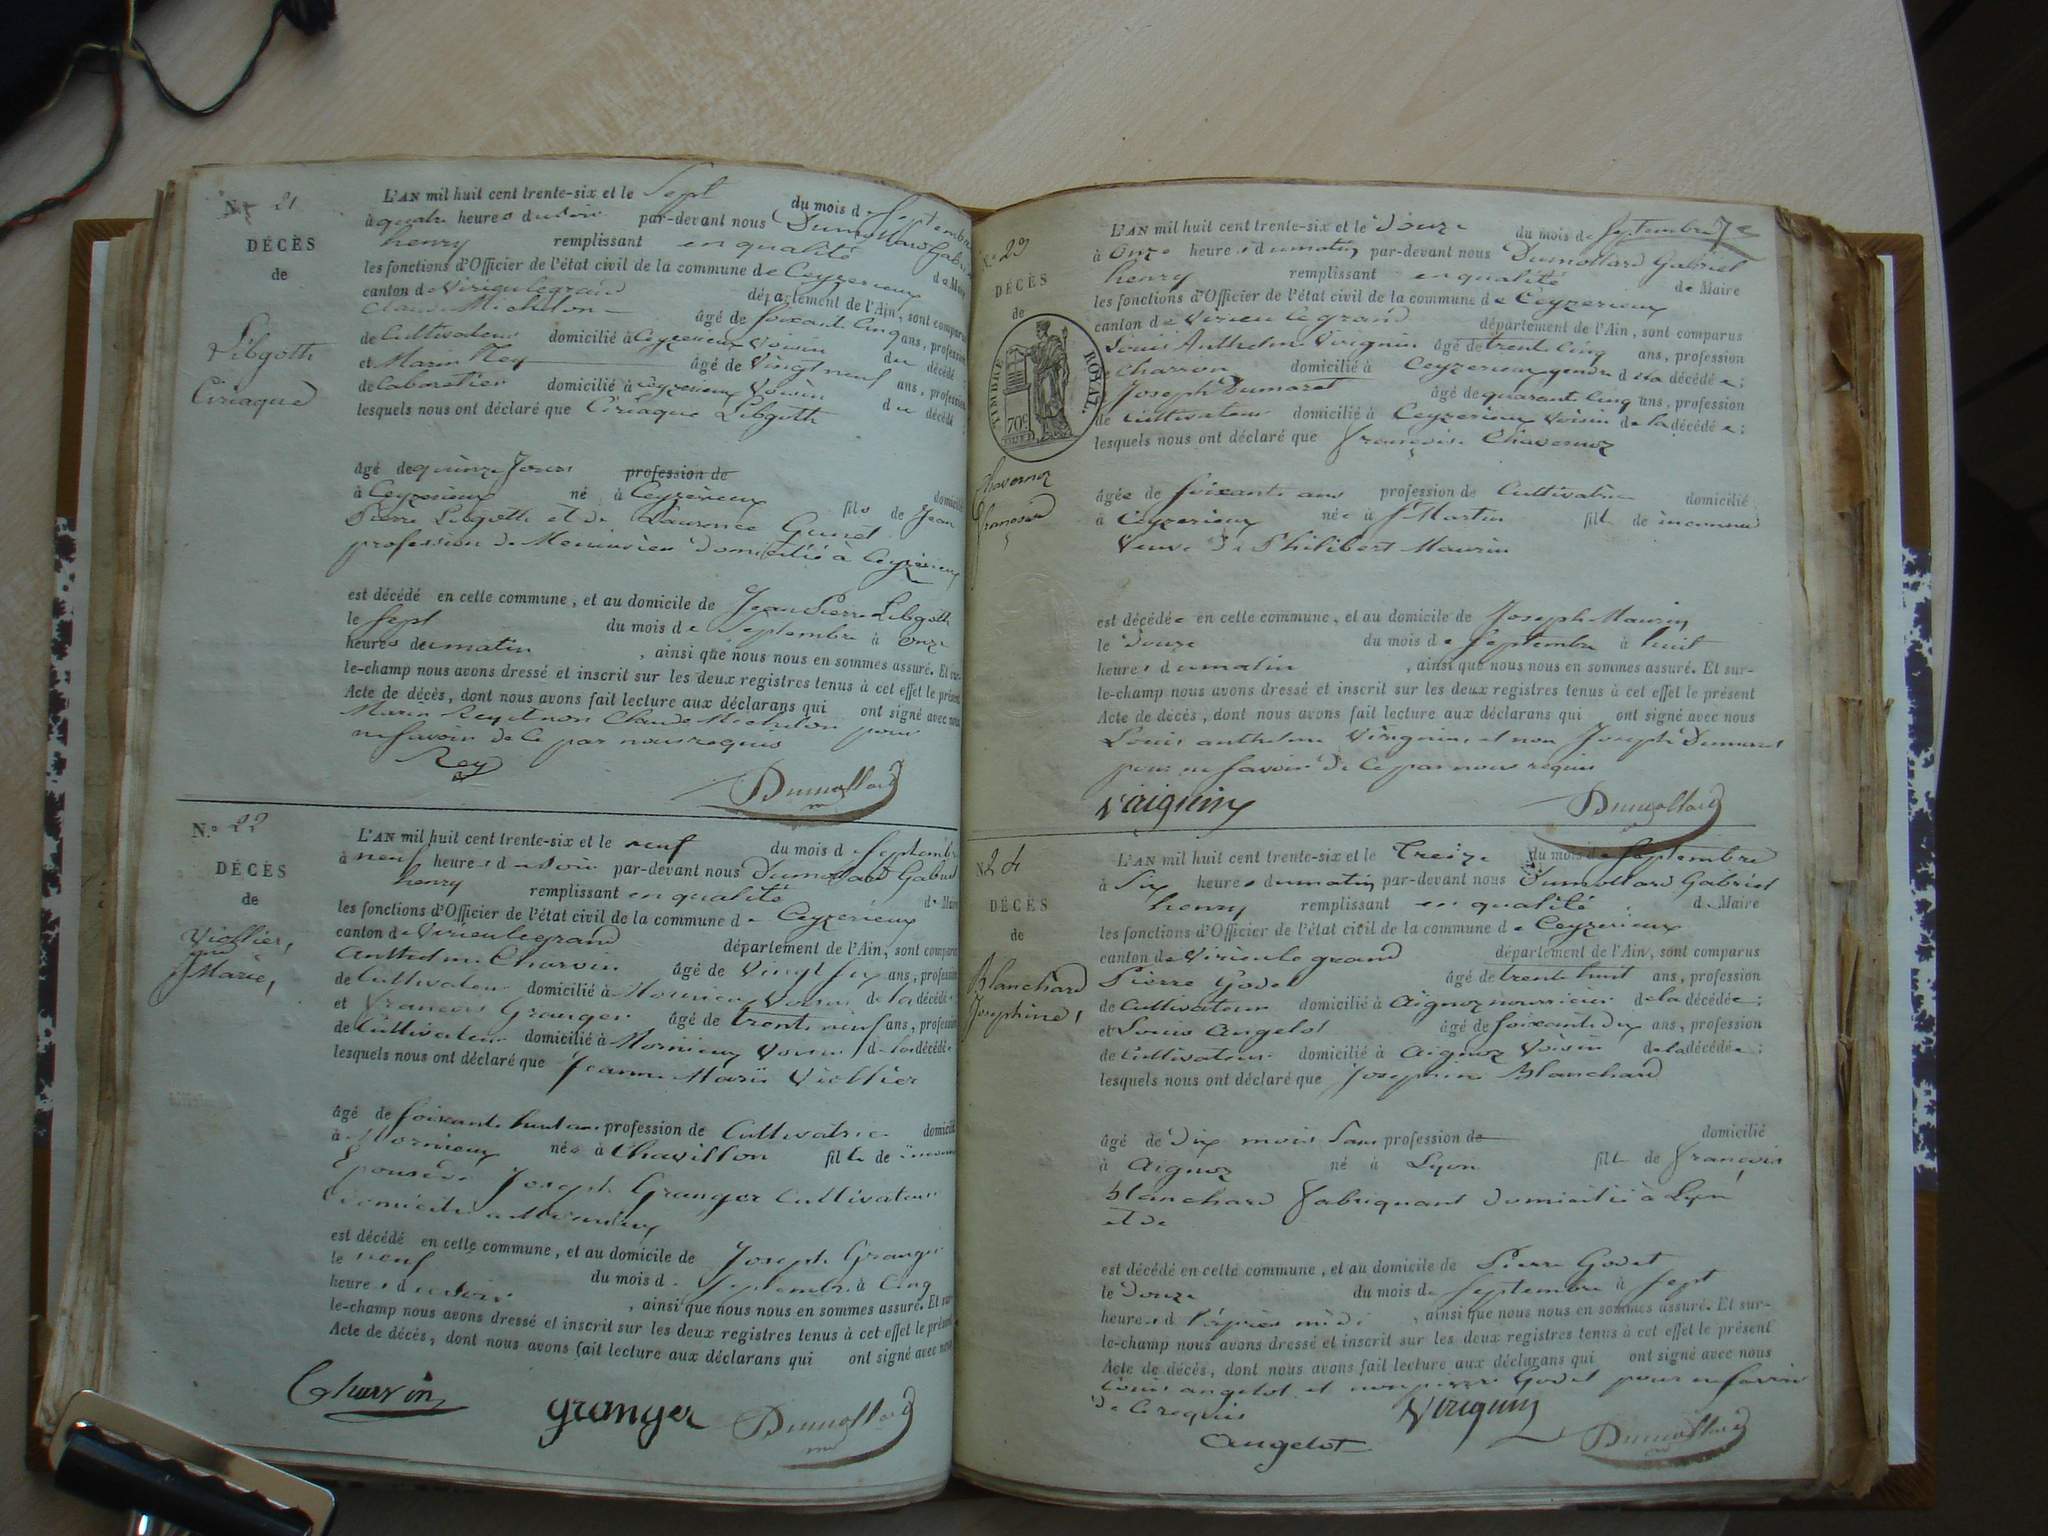 N.º 21
DÉCÈS
de
Libgoth
Ciriaque
L'AN mil huit cent trente-six et le Sept du mois de Septembre
à quatre heures du soir par-devant nous Dumollard Gabriel
henry remplissant en qualité de Maire
les fonctions d'Officier de l'état civil de la commune de Ceyzerieux
canton de Virieu le grand département de l'Ain, sont comparus
Claude Michelon âgé de soixante cinq ans, profession
de Cultivateur domicilié à Ceyzerieux Voisin du décédé ;
et Marin Rey âgé de Vingt neuf ans, profession
de Cabaretier domicilié à Ceyzerieux Voisin du décédé
lesquels nous ont déclaré que Ciriaque Libgoth
âgé de quinze Jours profession de domicilié
à Ceyzerieux né à Ceyzerieux fils de Jean
Pierre Libgoth et de Laurence Gunet
profession de Menuisier domicilié à Ceyzerieux
est décédé en cette commune, et au domicile de Jean Pierre Libgoth
le sept du mois de Septembre à onze
heures du matin , ainsi que nous nous en sommes assuré. Et sur-
le-champ nous avons dressé et inscrit sur les deux registres tenus à cet effet le présent
Acte de décès, dont nous avons fait lecture aux déclarans qui ont signé avec nous
Marin Rey et non Claude Michelon pour
ne savoir de ce par nous requis
Rey Dumollard
N.º 22
DÉCÈS
de
Viollier,
Marie,
L'AN mil huit cent trente-six et le neuf du mois de Septembre
à neuf heures du soir par-devant nous Dumollard Gabriel
henry remplissant en qualité de Maire
les fonctions d'Officier de l'état civil de la commune de Ceyzerieux
canton de Virieu le grand département de l'Ain, sont comparus
Anthelme Charvin âgé de Vingt six ans, profession
de Cultivateur domicilié à Mornieux Voisin de la décédée
et François Granger âgé de trente neuf ans, profession
de Cultivateur domicilié à Mornieux Voisin de la décédée
lesquels nous ont déclaré que Jeanne Marie Viollier
âgé de soixante huit ans profession de Cultivatrice domicilié
à Mornieux née à Chavillon fille de inconnu
Epouse de Joseph Granger Cultivateur
Domicilié à Mornieux
est décédé en cette commune, et au domicile de Joseph Granger
le neuf du mois de Septembre à Cinq
heures du soir , ainsi que nous nous en sommes assuré. Et sur-
le-champ nous avons dressé et inscrit sur les deux registres tenus à cet effet le présent
Acte de décès, dont nous avons fait lecture aux déclarans qui ont signé avec nous
Charvin granger Dumollard
N.º 23
DÉCÈS
de
TIMBRE ROYAL
70c
Chavernoz
Françoise
L'AN mil huit cent trente-six et le Douze du mois de Septembre
à Onze heures du matin par-devant nous Dumollard Gabriel
henry remplissant en qualité de Maire
les fonctions d'Officier de l'état civil de la commune de Ceyzerieux
canton de Virieu le grand département de l'Ain, sont comparus
Louis Anthelme Viriguin âgé de trente Cinq ans, profession
de Charron domicilié à Ceyzerieux gendre de la décédée ;
Joseph Dumaret âgé de quarante Cinq ans, profession
de Cultivateur domicilié à Ceyzerieux Voisin de la décédée ;
lesquels nous ont déclaré que françoise Chavernoz
âgée de soixante ans profession de Cultivatrice domicilié
à Ceyzerieux née à St Martin fille de inconnu
Veuve de Philibert Maurin
est décédée en cette commune, et au domicile de Joseph Maurin
le Douze du mois de Septembre à huit
heures du matin , ainsi que nous nous en sommes assuré. Et sur-
le-champ nous avons dressé et inscrit sur les deux registres tenus à cet effet le présent
Acte de décès, dont nous avons fait lecture aux déclarans qui ont signé avec nous
Louis anthelme Viriguin et non Joseph Dumaret
pour ne savoir de ce par nous requis
Dumollard
N 24
DÉCÈS
de
Blanchard
Josephine,
L'AN mil huit cent trente-six et le Treize du mois de Septembre
à Six heures du matin par-devant nous Dumollard Gabriel
henry remplissant en qualité de Maire
les fonctions d'Officier de l'état civil de la commune de Ceyzerieux
canton de Virieu le grand département de l'Ain, sont comparus
Pierre Godet âgé de trente huit ans, profession
de Cultivateur domicilié à Aignoz nourricier de la décédée ;
et Louis Angelot âgé de soixante dix ans, profession
de Cultivateur domicilié à Aignoz Voisin de la décédée ;
lesquels nous ont déclaré que Josephine Blanchard
âgé de Dix mois Sans profession de domicilié
à Aignoz né à Lyon fille de François
Blanchard Fabriquant domicilié à Lyon
et de
est décédé en cette commune, et au domicile de Pierre Godet
le Douze du mois de Septembre à Sept
heures d l'après midi , ainsi que nous nous en sommes assuré. Et sur-
le-champ nous avons dressé et inscrit sur les deux registres tenus à cet effet le présent
Acte de décès, dont nous avons fait lecture aux déclarans qui ont signé avec nous
Louis angelot et non pierre Godet pour ne savoir
de ce requis Viriguin
angelot Dumollard